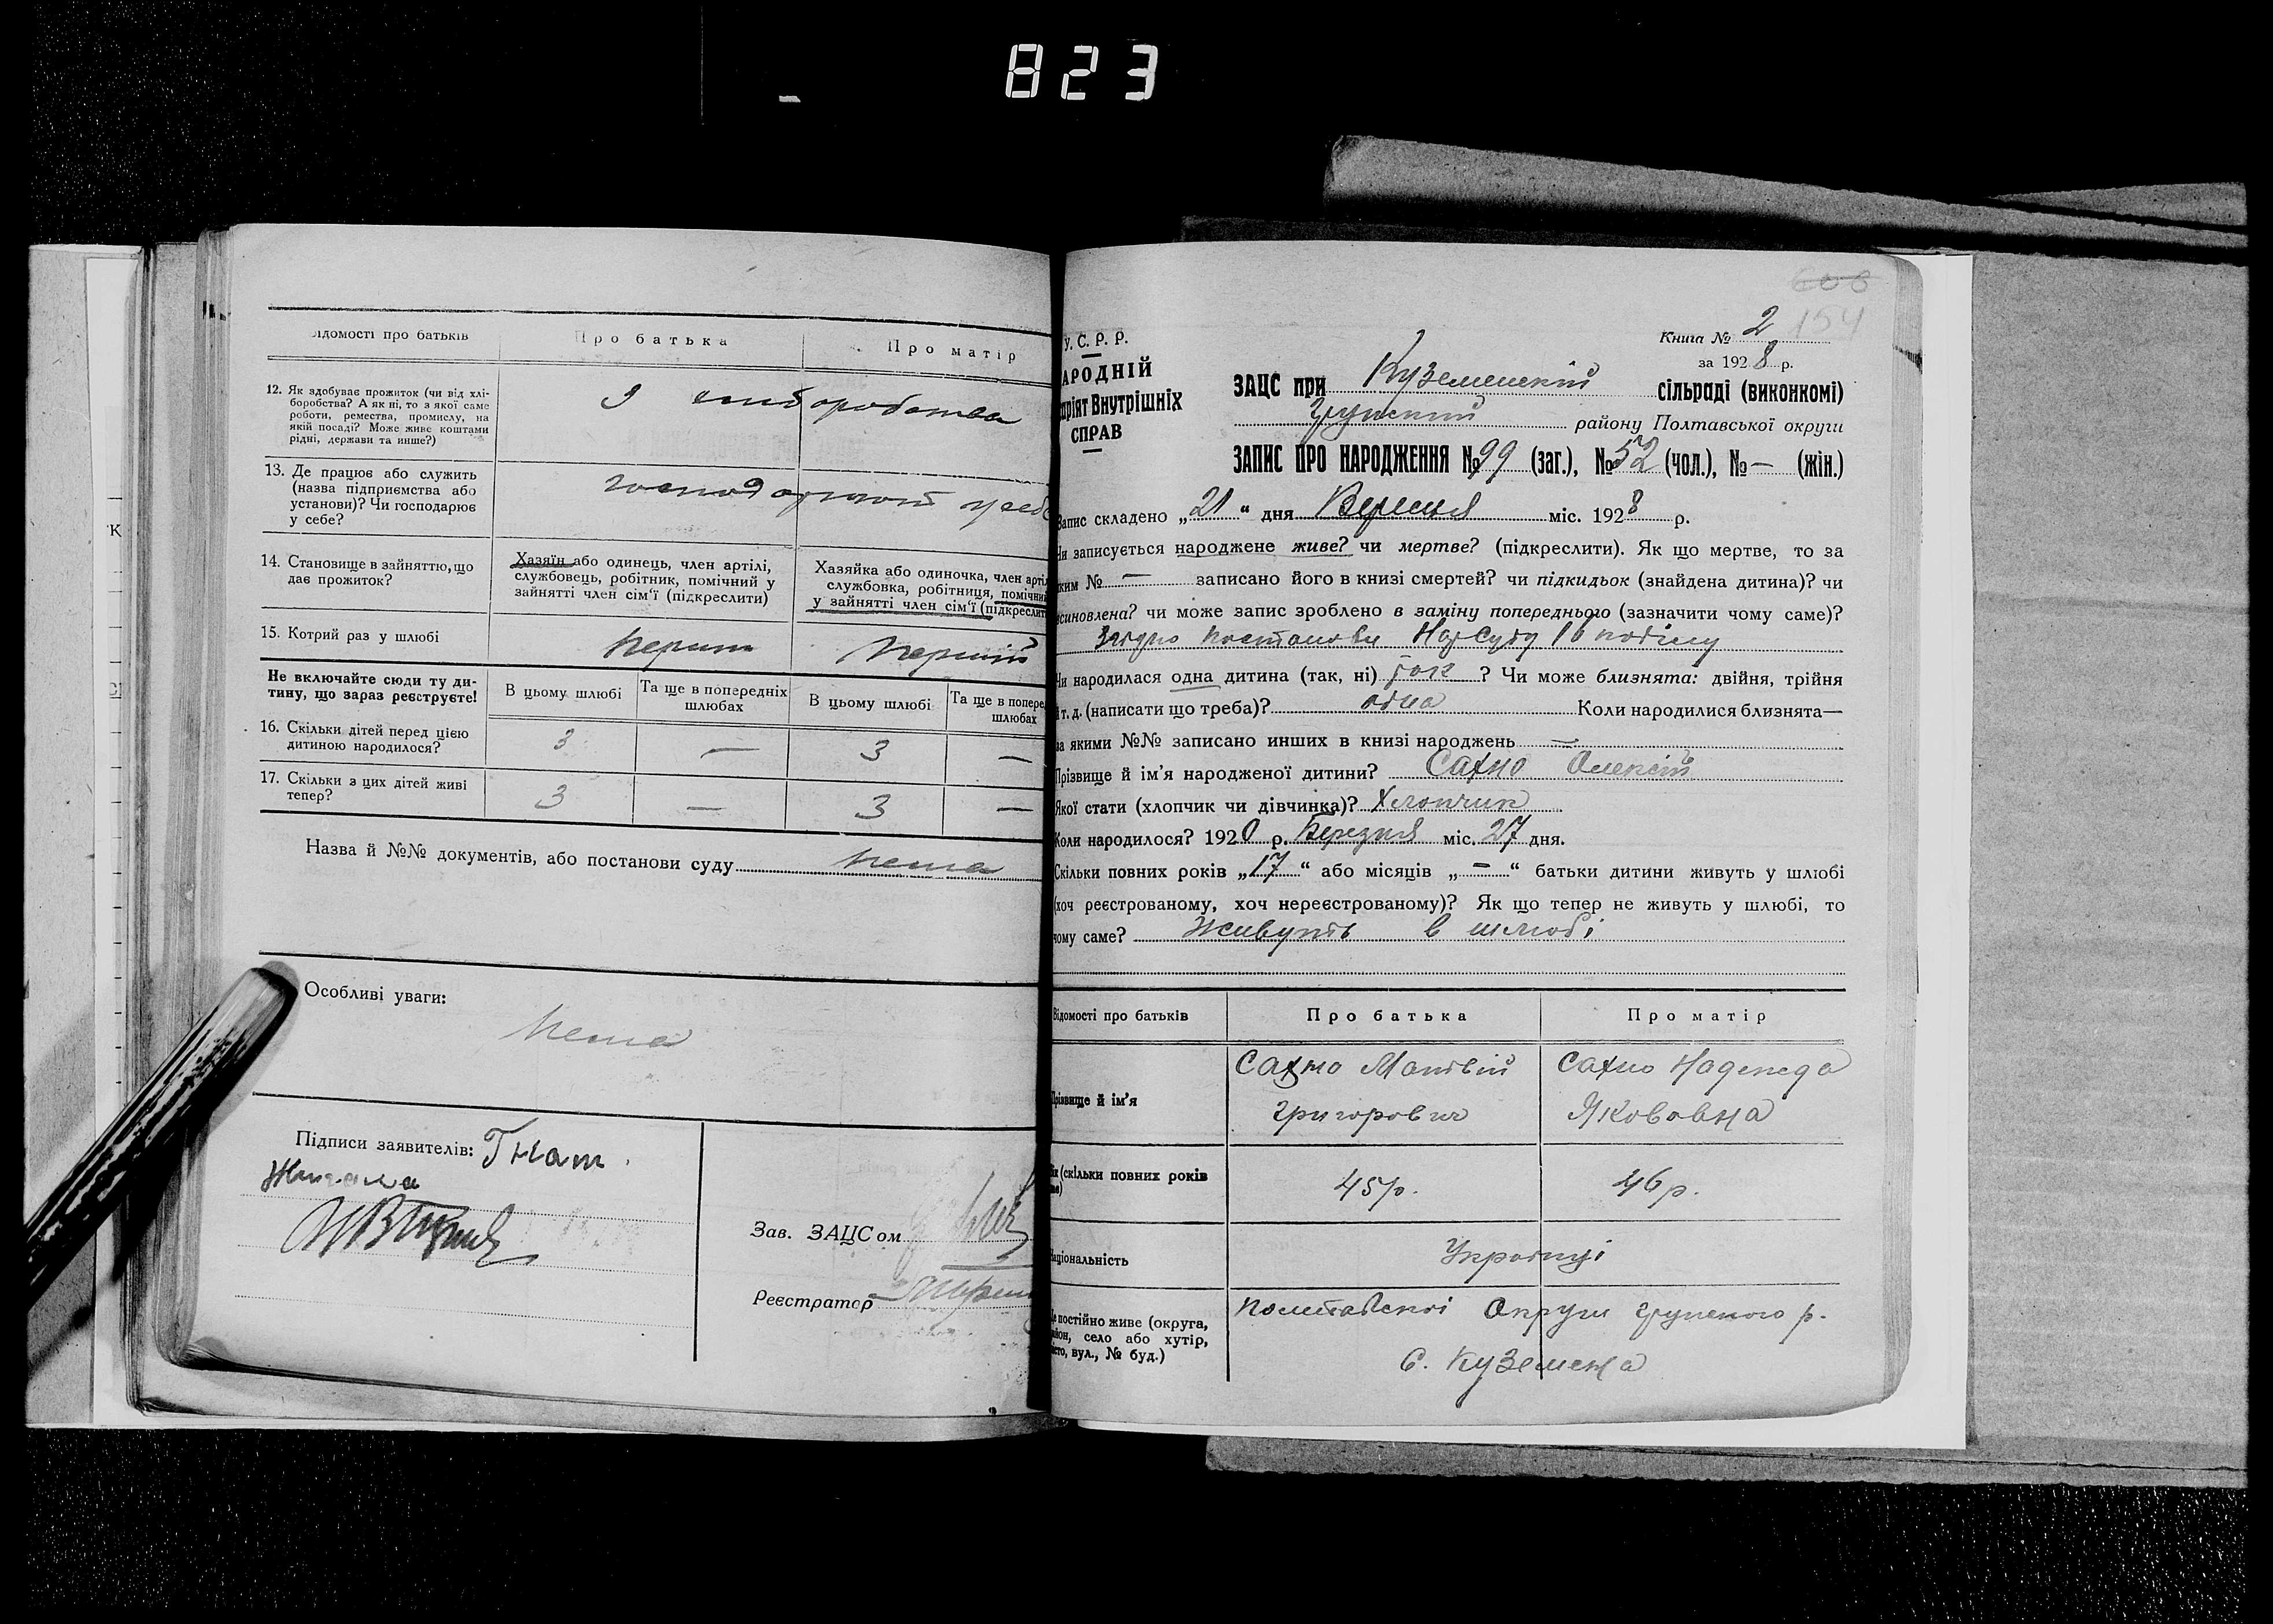 823
Відомості про батьків
Про батька
Про матір
12. Як здобуває прожиток (чи від хлі-
боробства? А як ні, то з якої саме
роботи, ремества, промислу, на
якій посаді? Може живе коштами
рідні, держави та инше?)
З хліборобства
13. Де працює або служить
(назва підприємства або
установи)? Чи господарює
у себе?
господарюють у себе
14. Становище в зайняттю, що
дає прожиток?
Хазяїн або одинець, член артілі,
службовець, робітник, помічний у
зайнятті член сім'ї (підкреслити)
Хазяйка або одиночка, член артіл
службовка, робітниця, помічни
у зайнятті член сім'ї (підкреслит
15. Котрий раз у шлюбі
перший
перший
Не включайте сюди ту ди-
тину, що зараз реєструєте!
В цьому шлюбі
Та ще в попередніх
шлюбах
В цьому шлюбі
Та ще в попере
шлюбах
16. Скільки дітей перед цією
дитиною народилося?
3 — 3 —
17. Скільки з цих дітей живі
тепер?
3 — 3 —
Назва й №№ документів, або постанови суду нема
Особливі уваги:
нема
Підписи заявителів: Гнат
Зав. ЗАЦСом
Реєстратор
606
154
Книга № 2
за 1928 р.
У. С. Р. Р.
АРОДНІЙ
аріят Внутрішніх
СПРАВ
ЗАЦС при Куземенскій сільраді (виконкомі)
Грунский району Полтавської округи
ЗАПИС ПРО НАРОДЖЕННЯ №99 (заг.), №52 (чол.), №— (жін.)
Запис складено „21“ дня Вересня міс. 1928 р.
Чи записується народжене живе? чи мертве? (підкреслити). Як що мертве, то за
яким № — записано його в книзі смертей? чи підкидьок (знайдена дитина)? чи
всиновлена? чи може запис зроблено в заміну попереднього (зазначити чому саме)?
Згідно постанови НарСуду 16
Чи народилася одна дитина (так, ні) так ? Чи може близнята: двійня, трійня
й т. д. (написати що треба)? одна Коли народилися близнята—
за якими №№ записано инших в книзі народжень —
Прізвище й ім'я народженої дитини? Сахно Олексій
Якої стати (хлопчик чи дівчинка)? Хлопчик
Коли народилося? 1920 р. Березня міс. 27 дня.
Скільки повних років „17“ або місяців „—“ батьки дитини живуть у шлюбі
(хоч реєстрованому, хоч нереєстрованому)? Як що тепер не живуть у шлюбі, то
чому саме? Живуть в шлюбі
Відомості про батьків
Про батька
Про матір
Прізвище й ім'я
Сахно Матвій
Григорович
Сахно Надежда
Якововна
Вік (скільки повних років
45 р.
46 р.
Національність
Українці
Де постійно живе (округа,
район, село або хутір,
місто, вул., № буд.)
Полтавскої Округи Грунского р.
С. Куземена